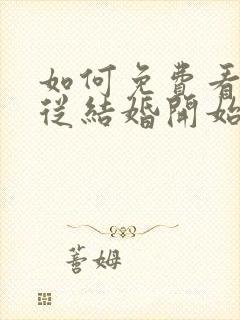 如何免費看
從結婚開始
蓍姆